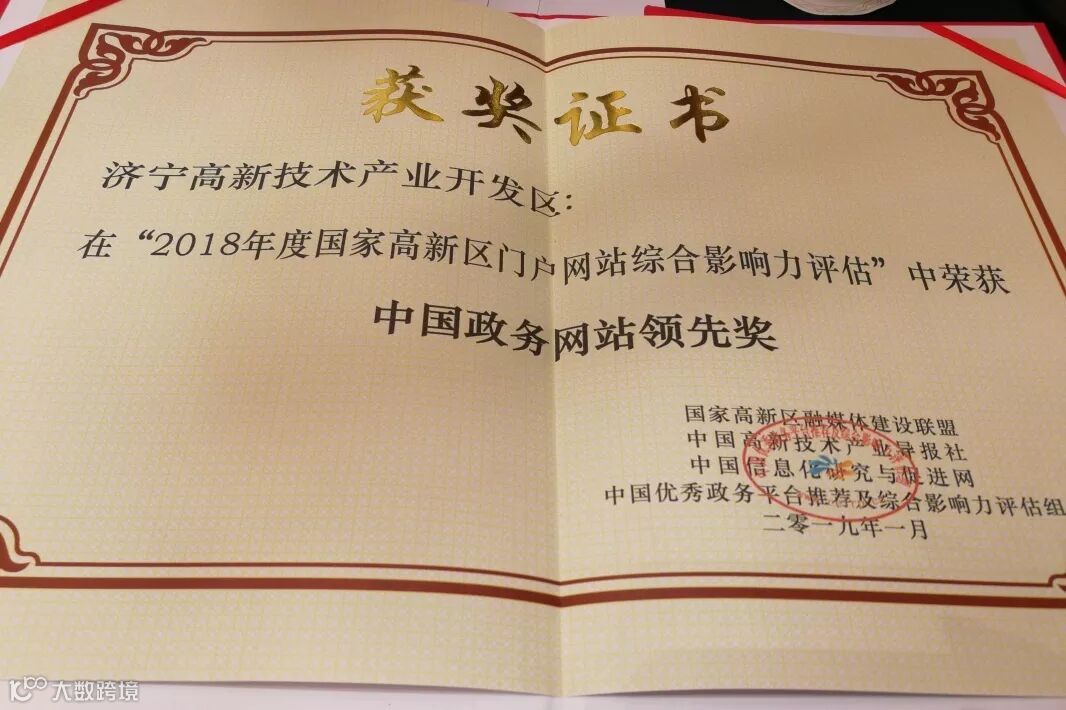 获奖证书
济宁高新技术产业开发区：
在“2018年度国家高新区门户网站综合影响力评估”中荣获
中国政务网站领先奖
国家高新区融媒体建设联盟
中国高新技术产业导报社
中国信息化研究与促进网
中国优秀政务平台推荐及综合影响力评估组
二零一九年一月
大数跨境